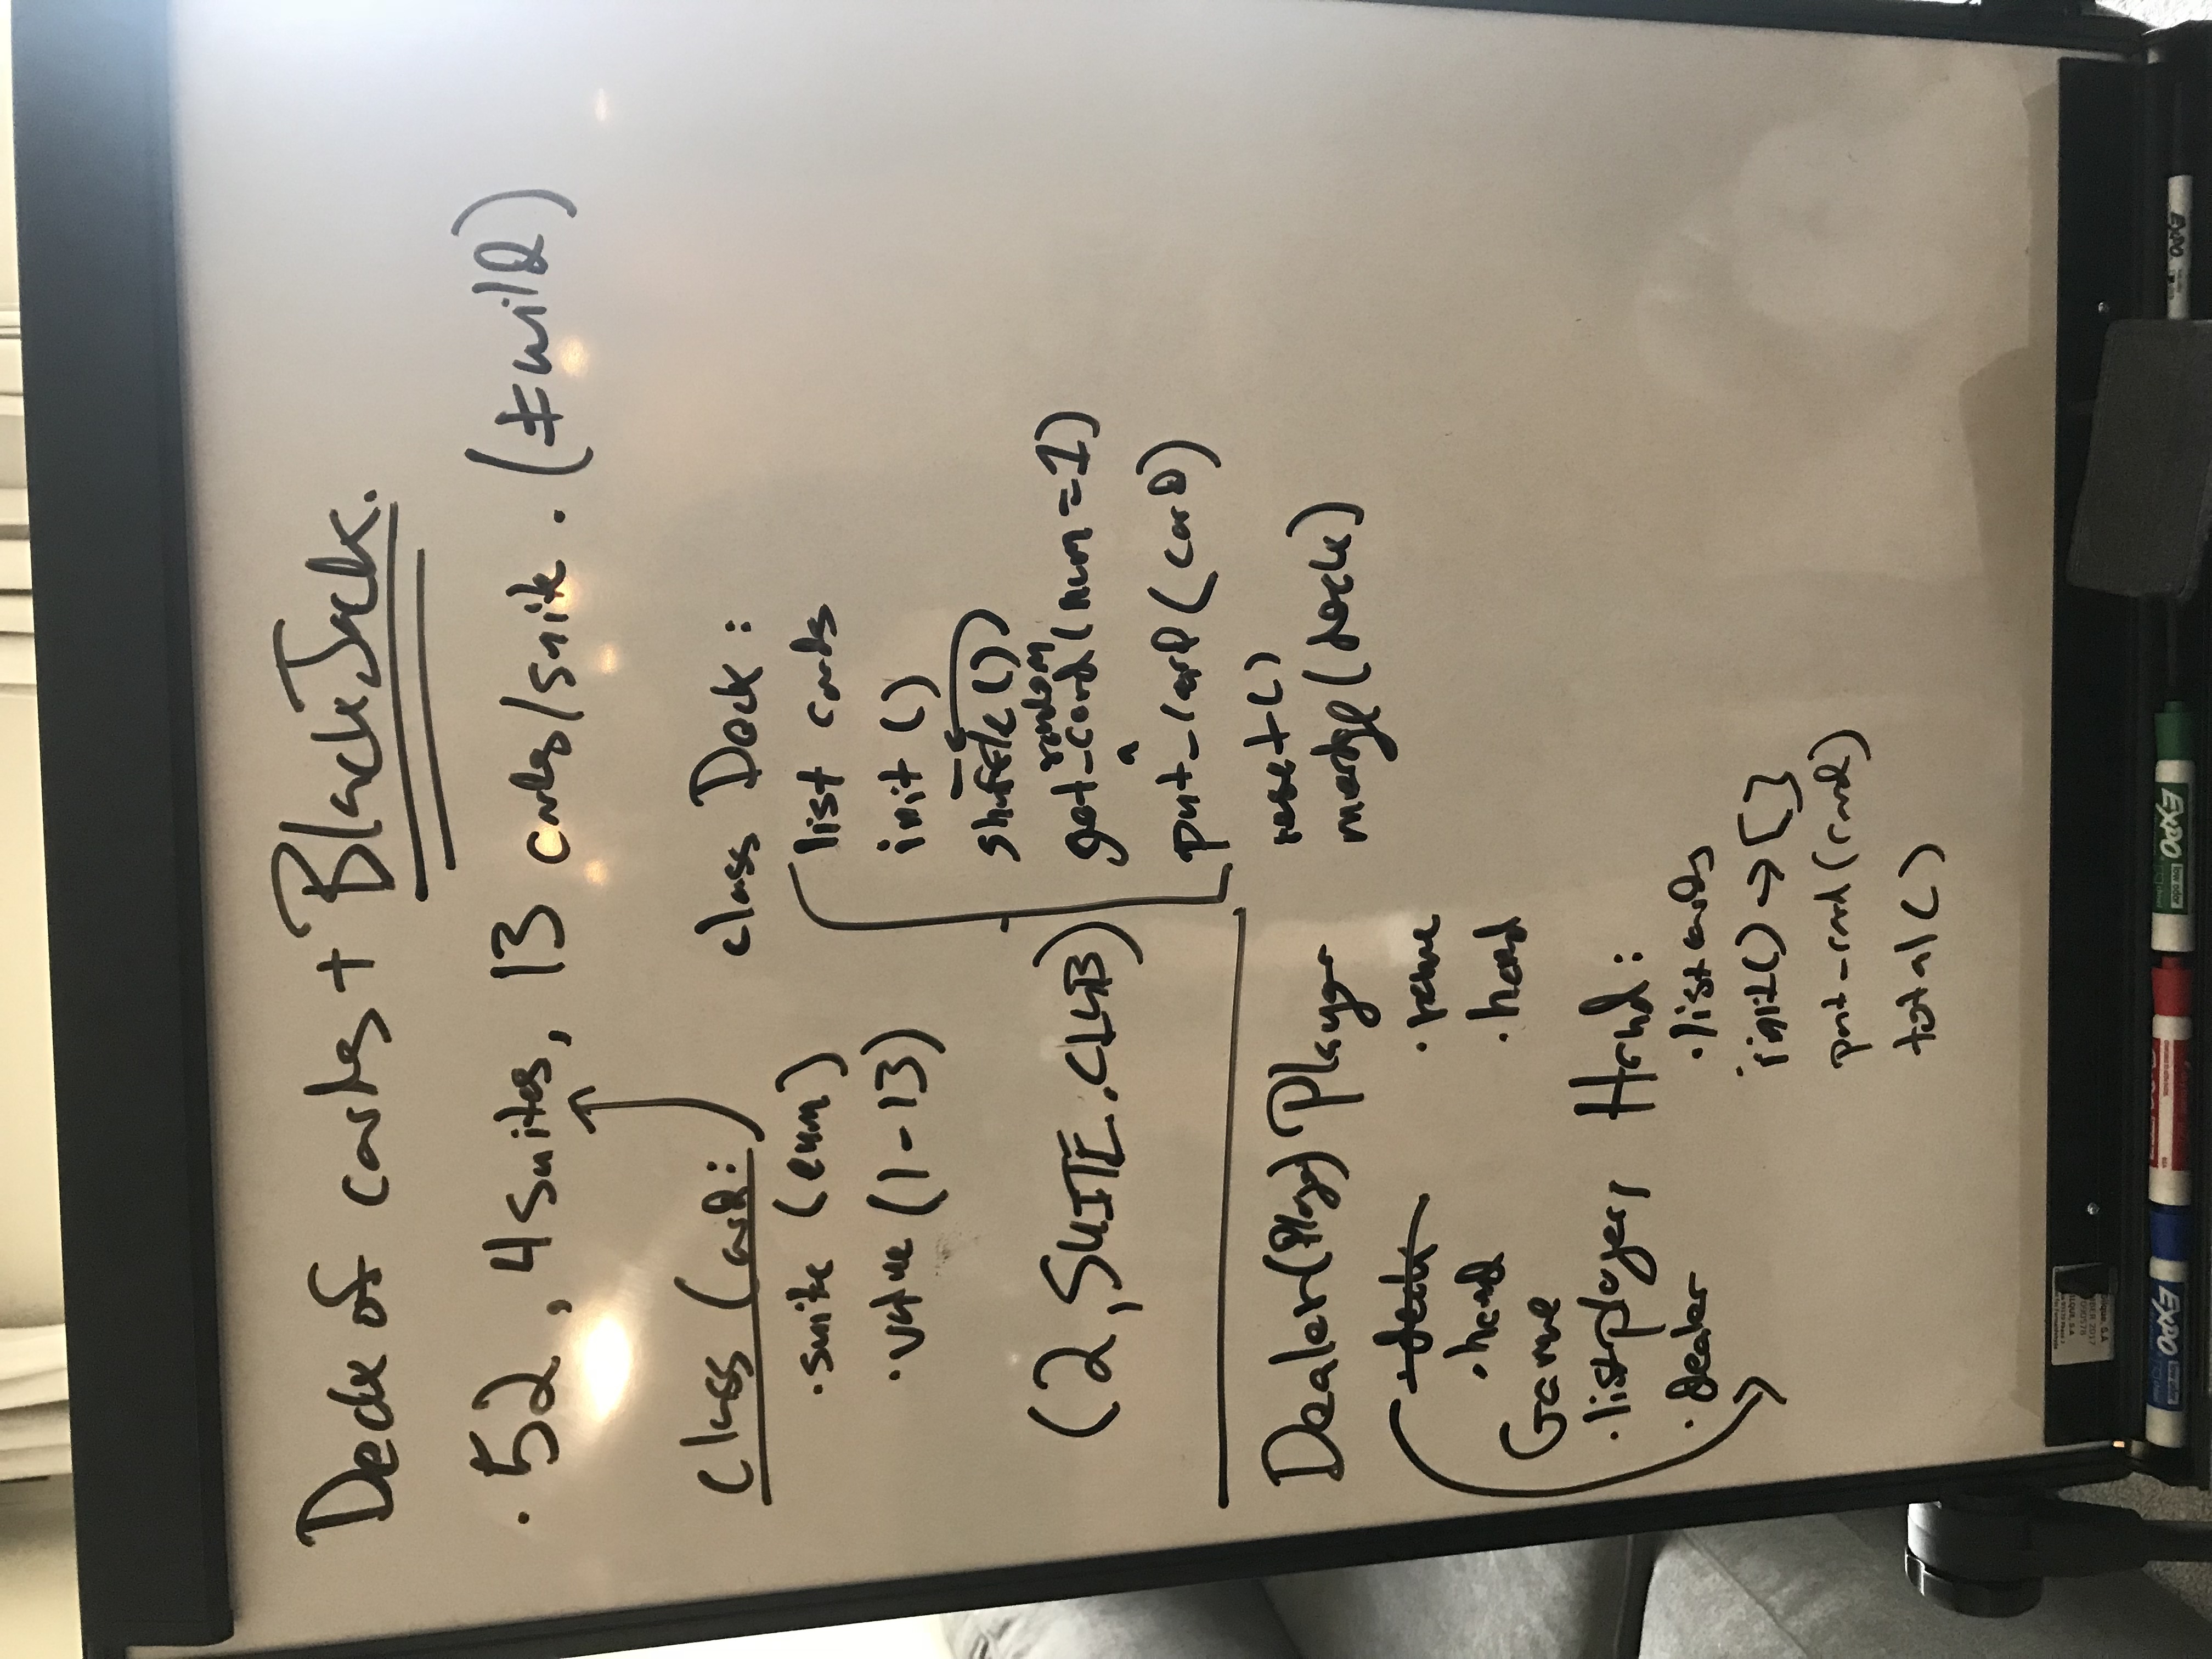 Deck of cards + BlackJack.
· 52, 4 suites, 13 cards/suite. (± wild)
class Card:
· suite (enum)
· value (1-13)
(2, SUITE.CLUB)
class Deck:
list cards
init ()
shuffle ()
random
get_card (num = 1)
put_card (card)
reset ()
merge (deck)
Dealer (Player)
deck
· hand
Player
· name
· hand
Game
· list players
· dealer
Hand:
· list cards
init() → []
put_card (card)
total ()
EXPO
low odor
EXPO
low odor
EXPO